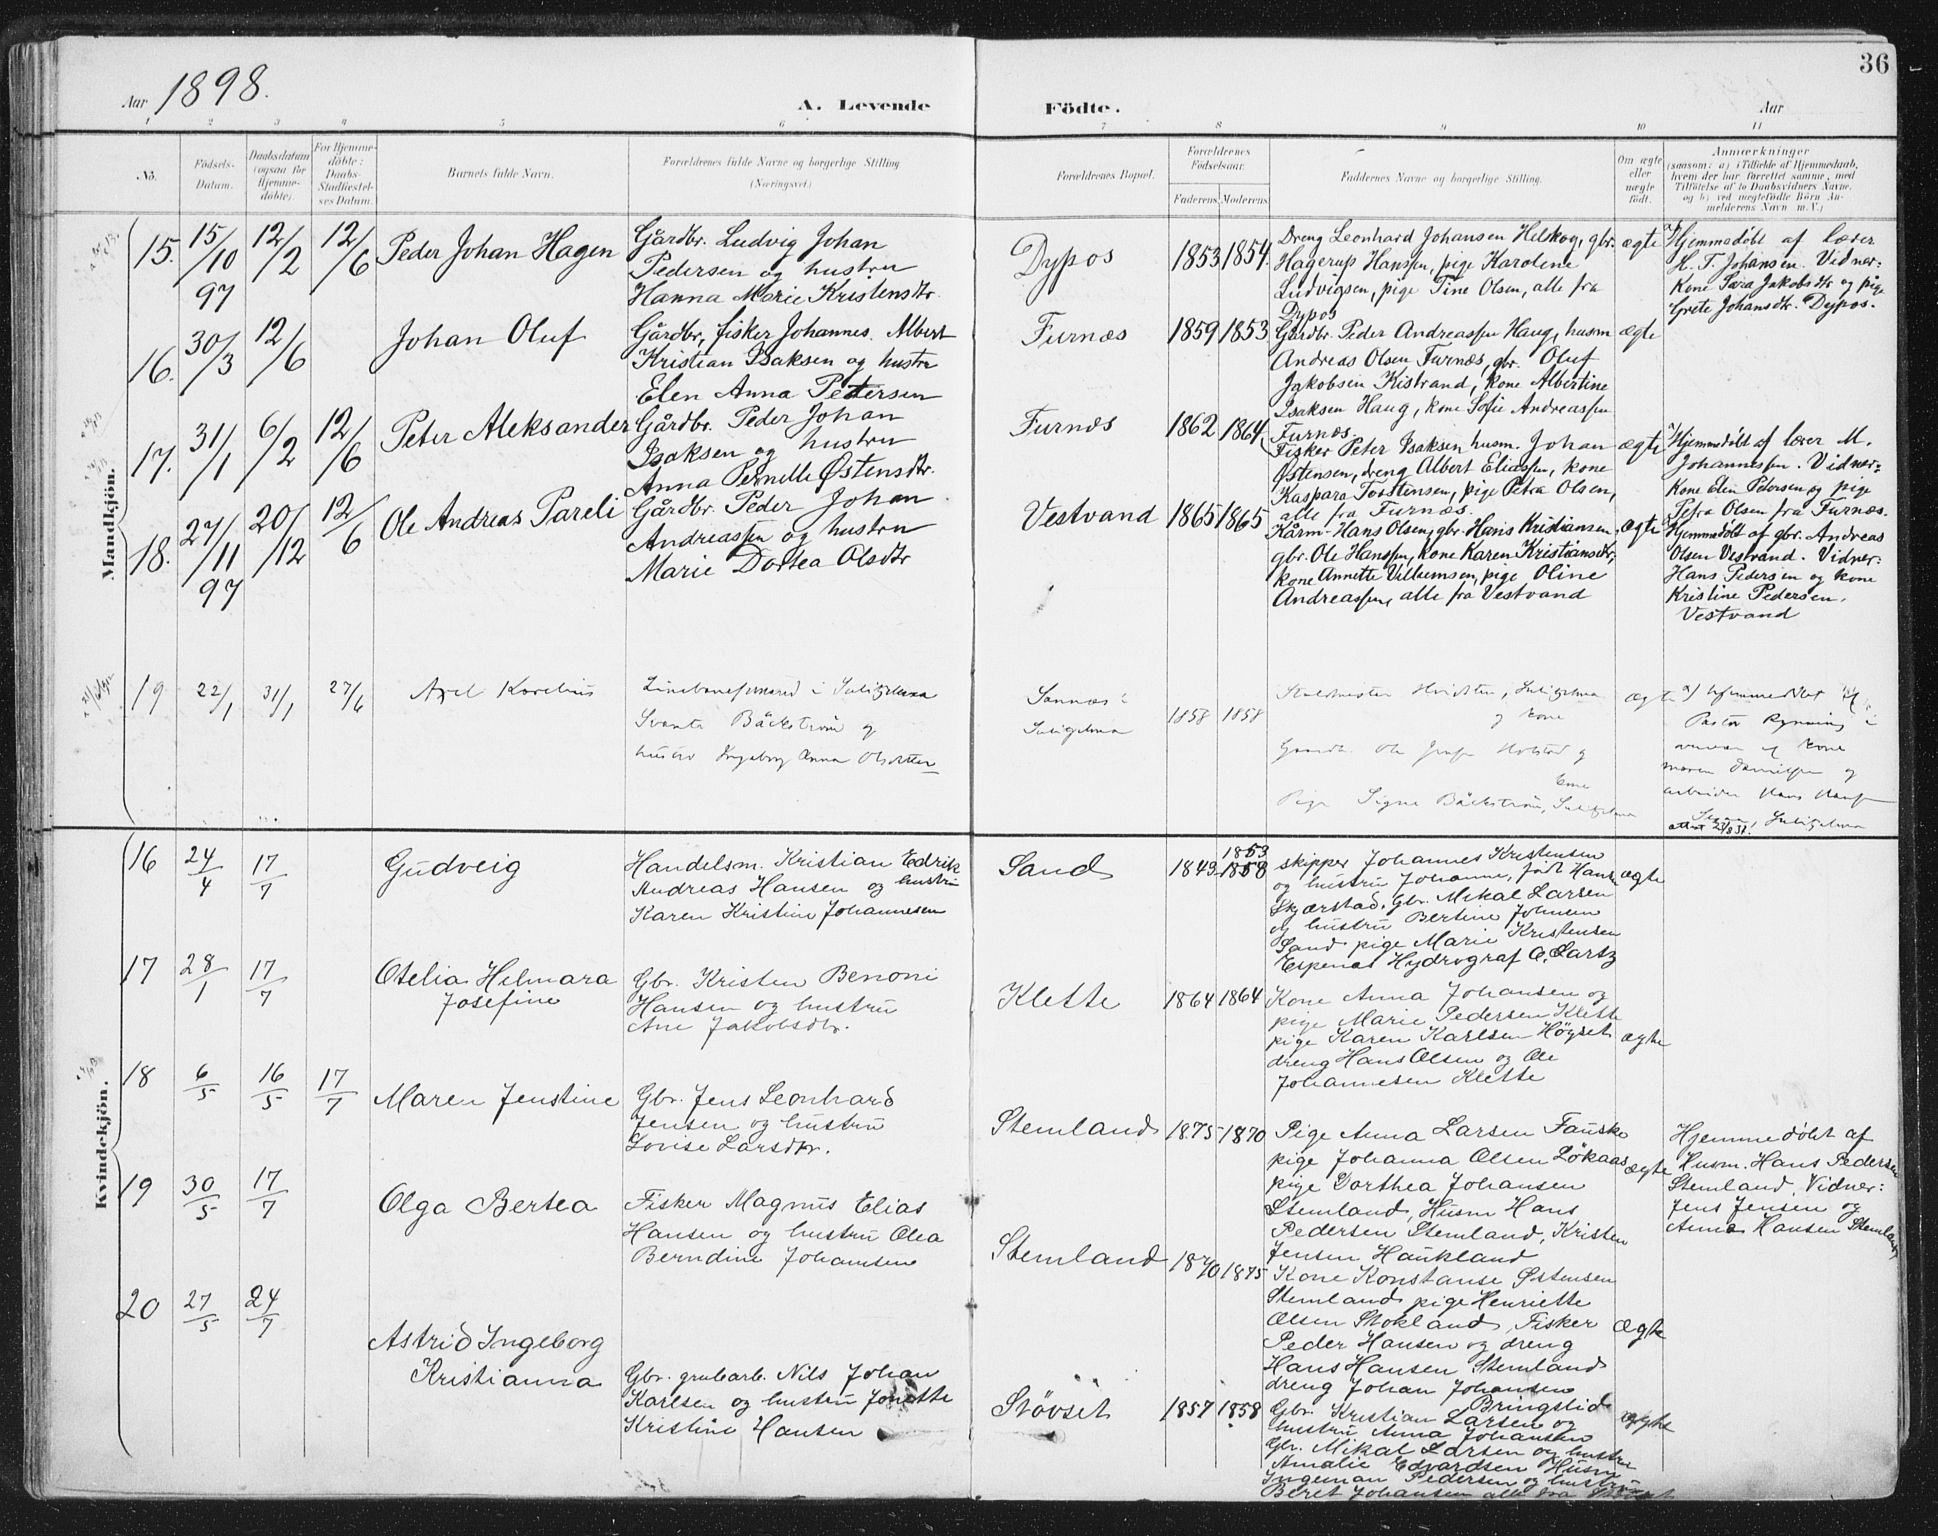 36
Aar 1898.
A. Levende Födte.
Aar
1 2 3 4 5 6 7 8 9 10 11
No.
Födsels-
Datum.
Daabsdatum
(ogsaa for
Hjemme-
döbte).
For Hjemme-
döbte:
Daabs-
Stadfæstel-
ses Datum.
Barnets fulde Navn.
Forældrenes fulde Navne og borgerlige Stilling
(Næringsvei).
Forældrenes Bopæl.
Forældrenes
Födselsaar.
Faderens Moderens
Faddernes Navne og borgerlige Stilling.
Om ægte
eller
uægte
födt.
Anmærkninger
(saasom: a) i Tilfælde af Hjemmedaab,
hvem der har forrettet samme, med
Tilföielse af to Daabsvidners Navne,
og b) ved uægtefödte Börn An-
melderens Navn m. V.)
Mandkjön.
15.
15/10 97
12/2
12/6
Peder Johan Hagen
Gårdbr. Ludvig Johan
Pedersen og hustru
Hanna Marie Kristensdtr.
Dypos
1853 1854.
Dreng Leonhard Johansen Helskog, gbr.
Hagerup Hanssen, pige Karoline
Ludvigsen, pige Tine Olsen, alle fra
Dypos
ægte
a) Hjemmedøbt af lærer
H. T. Johansen. Vidner:
Kone Sara Jakobsdtr og pige
Grete Johansdtr. Dypos.
16.
30/3
12/6
Johan Oluf
Gårdbr, fisker Johannes Albert
Kristian Isaksen og hustru
Elen Anna Petersen
Furnæs
1859 1853
Gårdbr. Peder Andreassen Haug, husm
Andreas Olsen Furnæs, gbr. Oluf
Jakobsen Kistrand, kone Albertine
Isaksen Haug, kone Sofie Andreassen
Furnæs.
ægte
17.
31/1
6/2
12/6
Peter Aleksander
Gårdbr. Peder Johan
Isaksen og hustru
Anna Pernelle Østensdtr.
Furnæs
1862 1864
Fisker Peter Isaksen husm. Johan
Østensen, dreng Albert Eliassen, kone
Kaspara Torstensen, pige Petra Olsen,
alle fra Furnæs.
ægte
a) Hjemmedøbt af lærer M.
Johannessen. Vidner:
Kone Elen Pedersen og pige
Petra Olsen fra Furnæs.
18.
27/11 97
20/12
12/6
Ole Andreas Pareli
Gårdbr. Peder Johan
Andreassen og hustru
Marie Dortea Olsdtr
Vestvand
1865 1865
Kårm. Hans Olsen, gbr. Hans Kristiansen
gbr. Ole Hanssen, kone Karen Kristiansdtr,
kone Annette Vilhelmsen, pige Oline
Andreassen, alle fra Vestvand
ægte
Hjemmedøbt af gbr. Andreas
Olsen Vestvand. Vidner:
Hans Pedersen og kone
Kristine Pedersen.
Vestvand
19
22/1
31/1
27/6
Axel Kornelius
i Sulitjelma
Svante Bäckström og
hustru Ingeborg Anna Olsdatter
Sannæs i
Sulitjelma
1858 1858
Sulitjelma
og kone
Ole Holstad og
Pige Signe Bäckström, Sulitjelma
ægte
a) hjemmedöbt af
Pastor Rynning i
kone
og
arbeider Hans
Sulitjelma
attest 23/8 37!
Kvindekjön.
16
24/4
17/7
Gudveig
Handelsm. Kristian Edrik
Andreas Hansen og hustru
Karen Kristine Johannesen
Sand
1843
1853
1858
Skipper Johannes Kristensen
og hustru Johanne, født Hansen
Skjærstad, gbr. Mikal Larsen
og hustru Bertine Johnsen
Sand pige Marie Kristensen
Espenæs Hydrograf O. Sartz
ægte
17
28/1
17/7
Otelia Helmara
Josefine
Gbr. Kristen Benoni
Hansen og hustru
Ane Jakobsdtr.
Klette
1864 1864
Kone Anna Johansen og
pige Marie Pedersen Klette
pige Karen Karlsen Höyset
dreng Hans Olsen og Ole
Johannesen Klette
ægte
18
6/5
16/5
17/7
Maren Jenstine
Gbr. Jens Leonhard
Jensen og hustru
Lovise Larsdtr.
Stemland
1875 1870
Pige Anna Larsen Fauske
pige Johanna Olsen Løkaas
pige Dorthea Johansen
Stemland, Husm Hans
Pedersen Stemland, Kristen
Jensen Haukland
ægte
Hjemmedøbt af
Husm. Hans Pedersen
Stemland, Vidner:
Jens Jensen og
Anna Hansen Stemland
19
30/5
17/7
Olga Bertea
Fisker Magnus Elias
Hansen og hustru Olea
Berndine Johansen
Stemland
1870 1875
Kone Konstanse Østensen
Stemland pige Henriette
Olsen Stokland, Fisker
Peder Hansen og dreng
Hans Hansen Stemland
dreng Johan Johansen
Bringslid
ægte
20
27/5
24/7
Astrid Ingeborg
Kristianna
Gbr. grubearb. Nils Johan
Karlsen og hustru Jonette
Kristine Hansen
Støvset
1857 1858
Gbr. Kristian Larsen og
hustru Anna Johansen
Gbr. Mikal Larsen og hustru
Amalie Edvardsen Husm
Ingeman Pedersen og hustru
Beret Johansen alle fra Støvset
ægte